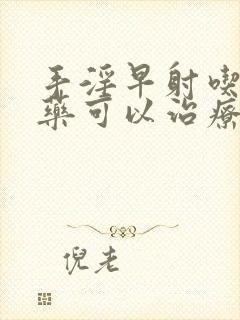 手淫早射喫
藥可以治療
倪老